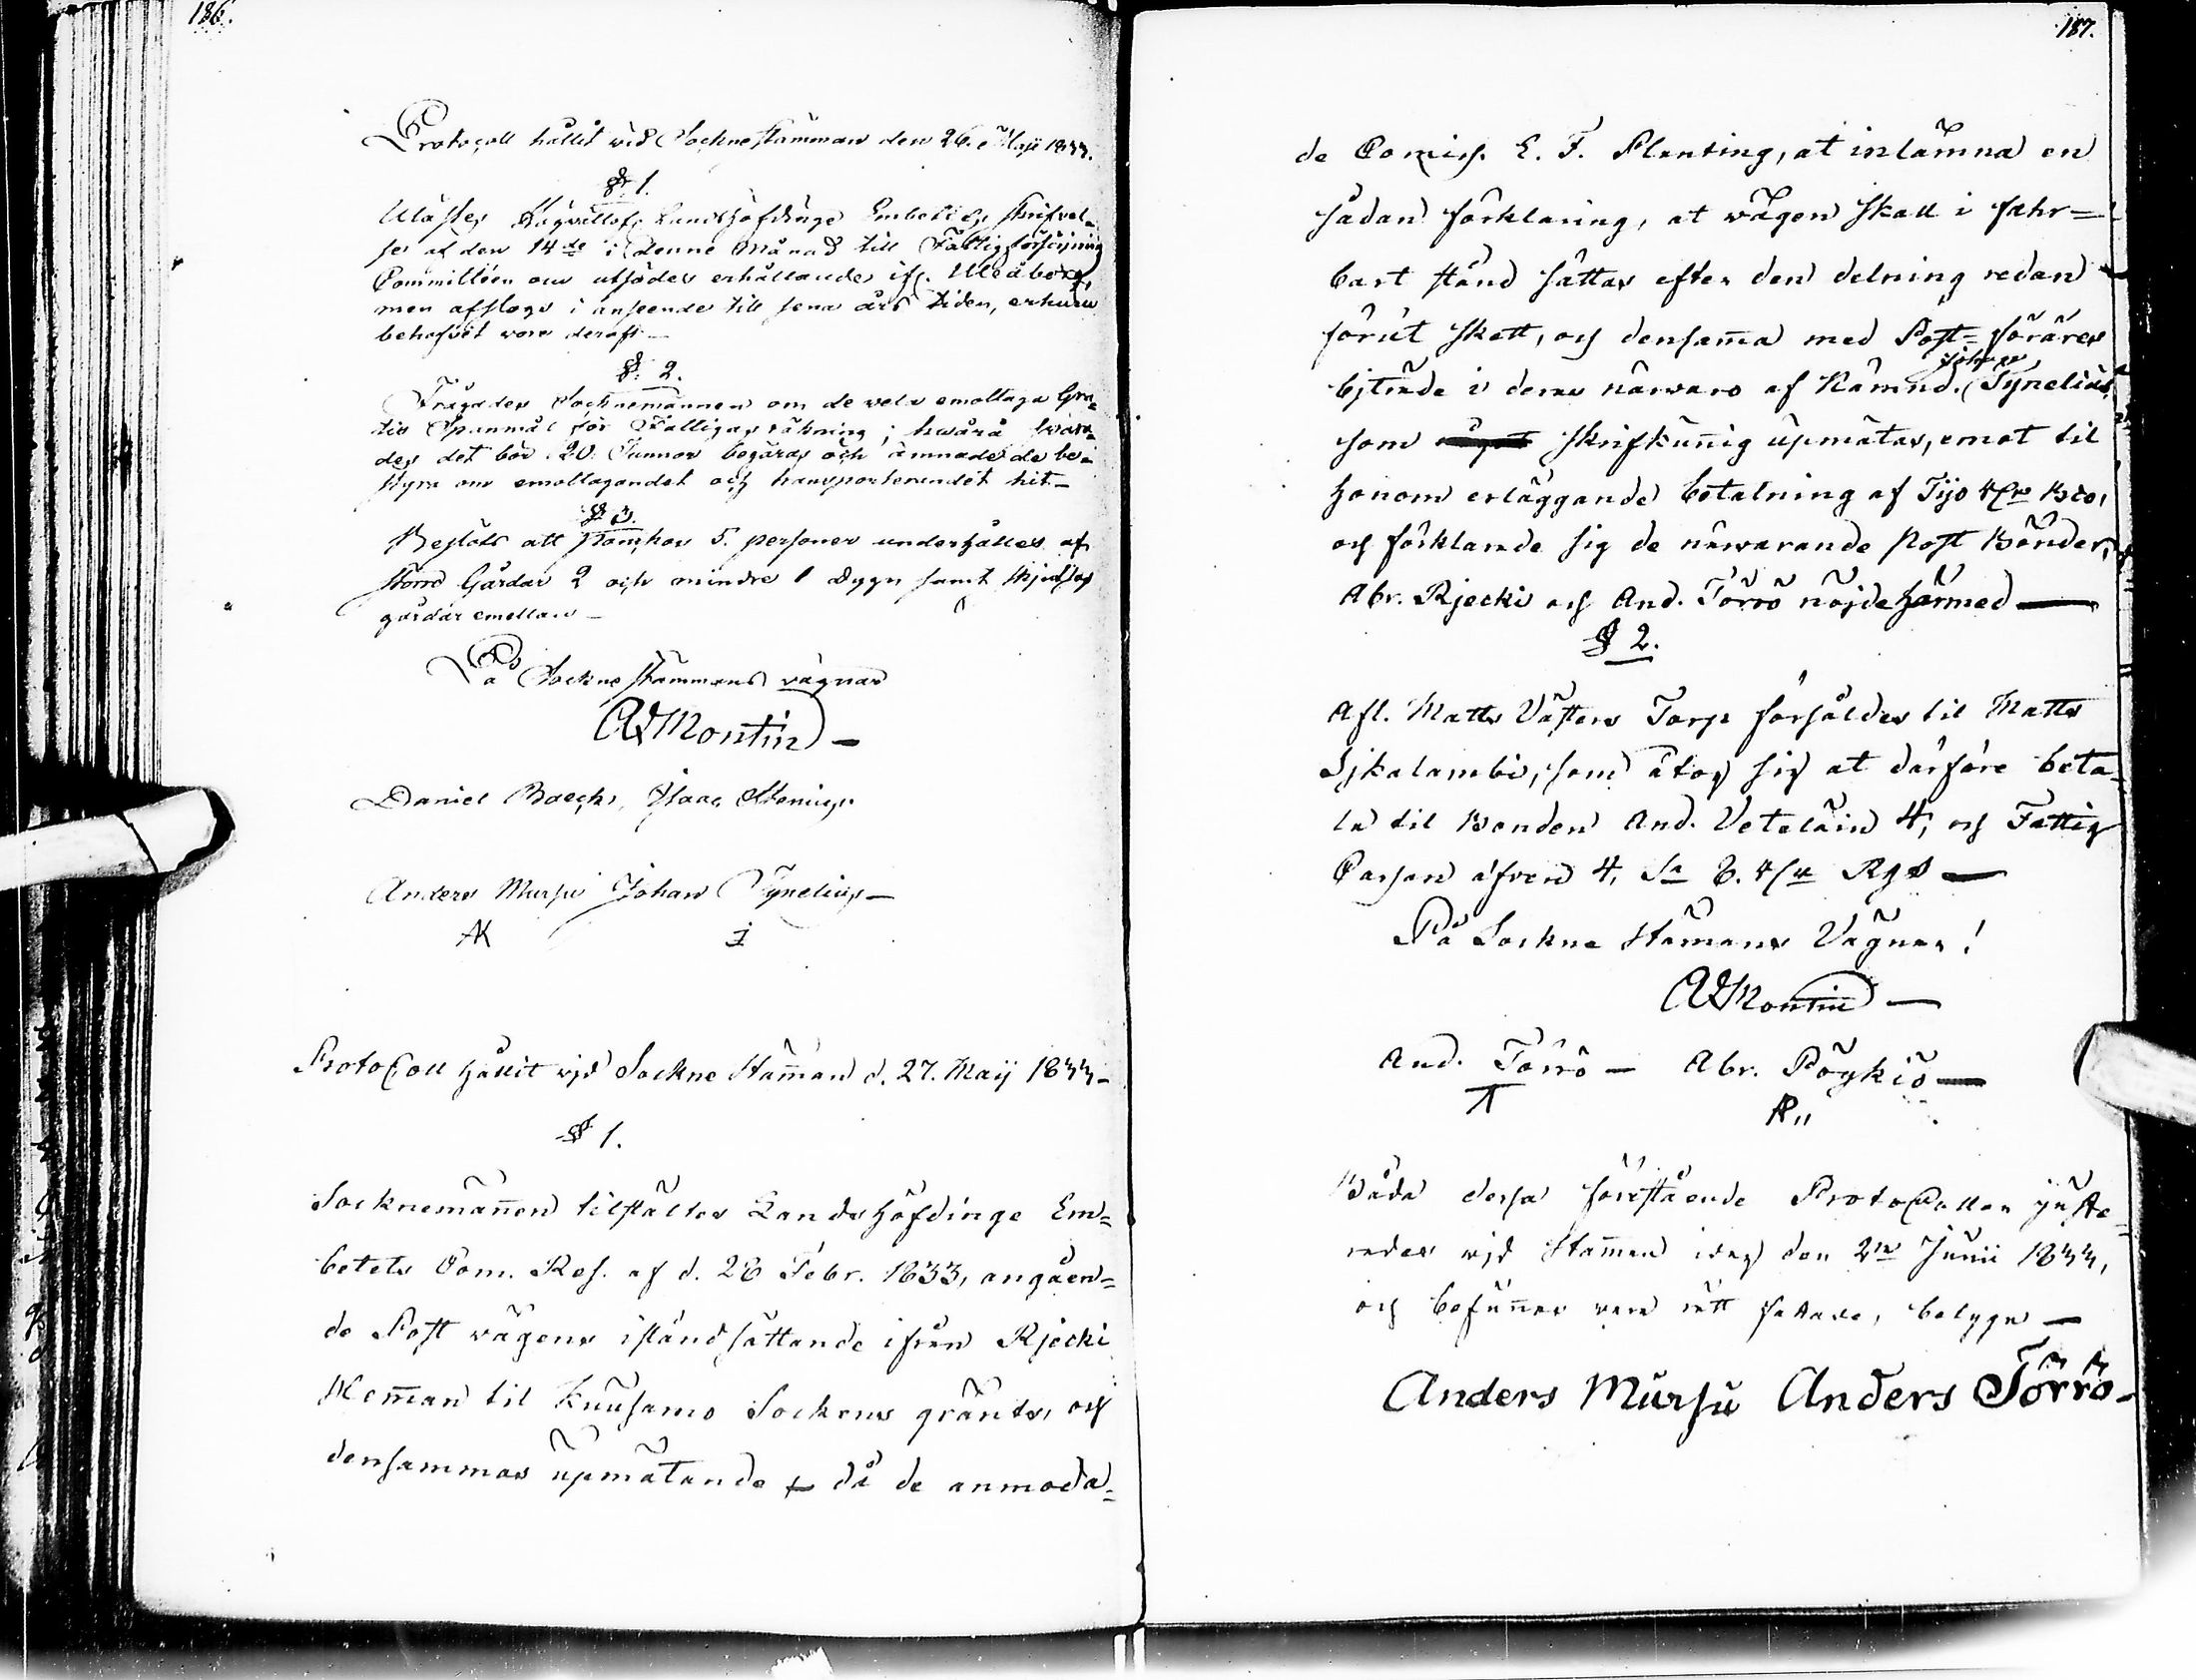 186.
Protocoll hållit wid Sockne stämman den 26. Maji 1833.
§ 1.
Uplästes Högvällofl. Landshöfdinge Embetets skrifvel-
se af den 14de i denne Månad till Fattigförsörjning
Committéen om utsädes erhållande ifr. Uleåborg,
men afslogs i anseende till sena års tiden, ehuru
behofvet vore deraf —
§ 2.
Frågades Socknemännen om de vela emottaga Gra-
tis Spanmål för Fattigas räkning; hwarå svara-
des det bör 20. Tunnor begäras och ämnade de be-
styra om emottagandet och transporterandet hit —
§ 3.
Beslöts att 5. personer underhålles af
större Gårdar 2 och mindre 1 dygn samt
gårdar emellan —
På Sockne stämmans vägnar
A Montin —
Daniel Baeck, Isaac Stenius
Anders Mursu Johan Tynelius —
AK I
Protocoll hållit wid Sockne Stämman d. 27. Maij 1833 —
§ 1.
Socknemännen tilstältes Landshöfdinge Em=
betets Com. Res. af d. 28 Febr. 1833, angåen=
de Post vägens iståndsättande ifrån Rjecki
Hemman til Kuusamo Sockens gränts, och
densammas upmätande — då de anmoda=
187.
de Comiss. E. F. Planting, at inlämna en
sådan förklaring, at vägen skall i fahr=
bart stånd sättas efter den delning redan
förut skett, och densamma med Post= förares
biträde i deras närvaro af Nämnd. Johan Tynelius,
som skrifkunnig upmätas, emot til
honom erläggande betalning af Tijo Rbr Bco,
och förklarade sig de närvarande Post Bönder,
Abr. Rjecki och And. Törrö nöjde härmed —
§ 2.
Afl. Matts Västers Torp försåldes til Matts
Sjkalambi, som åtog sig at därföre beta-
la til Bonden And. Vetelain 4, och Fattig
Cassan äfven 4, Sa 8. Rbr Rgs —
På Sockne Stämans Vägnar!
A Montin —
And. Törrö — Abr. Pöykiö —
T AP
Båda dessa förestående Protocoller juste-
rades wid Stämman idag den 2ne Junii 1833,
och befunnos vara rätt fattade, betyga —
Anders Mursu Anders Törrö —